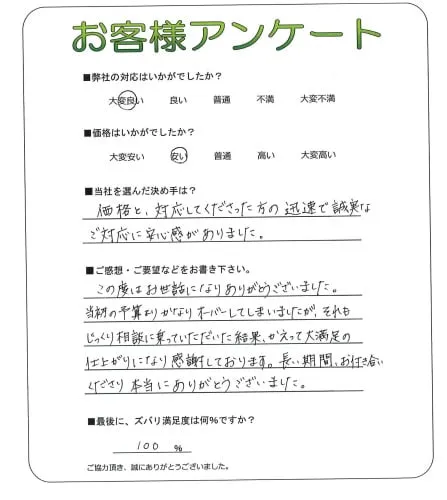 お客様アンケート
■弊社の対応はいかがでしたか？
大変良い 良い 普通 不満 大変不満
■価格はいかがでしたか？
大変安い 安い 普通 高い 大変高い
■当社を選んだ決め手は？
価格と、対応してくださった方の迅速で誠実な
ご対応に安心感がありました。
■ご感想・ご要望などをお書き下さい。
この度はお世話になりありがとうございました。
当初の予算よりかなりオーバーしてしまいましたが、それも
じっくり相談に乗っていただいた結果、かえって大満足の
仕上がりになり感謝しております。長い期間、お付き合い
くださり本当にありがとうございました。
■最後に、ズバリ満足度は何%ですか？
100 %
ご協力頂き、誠にありがとうございました。